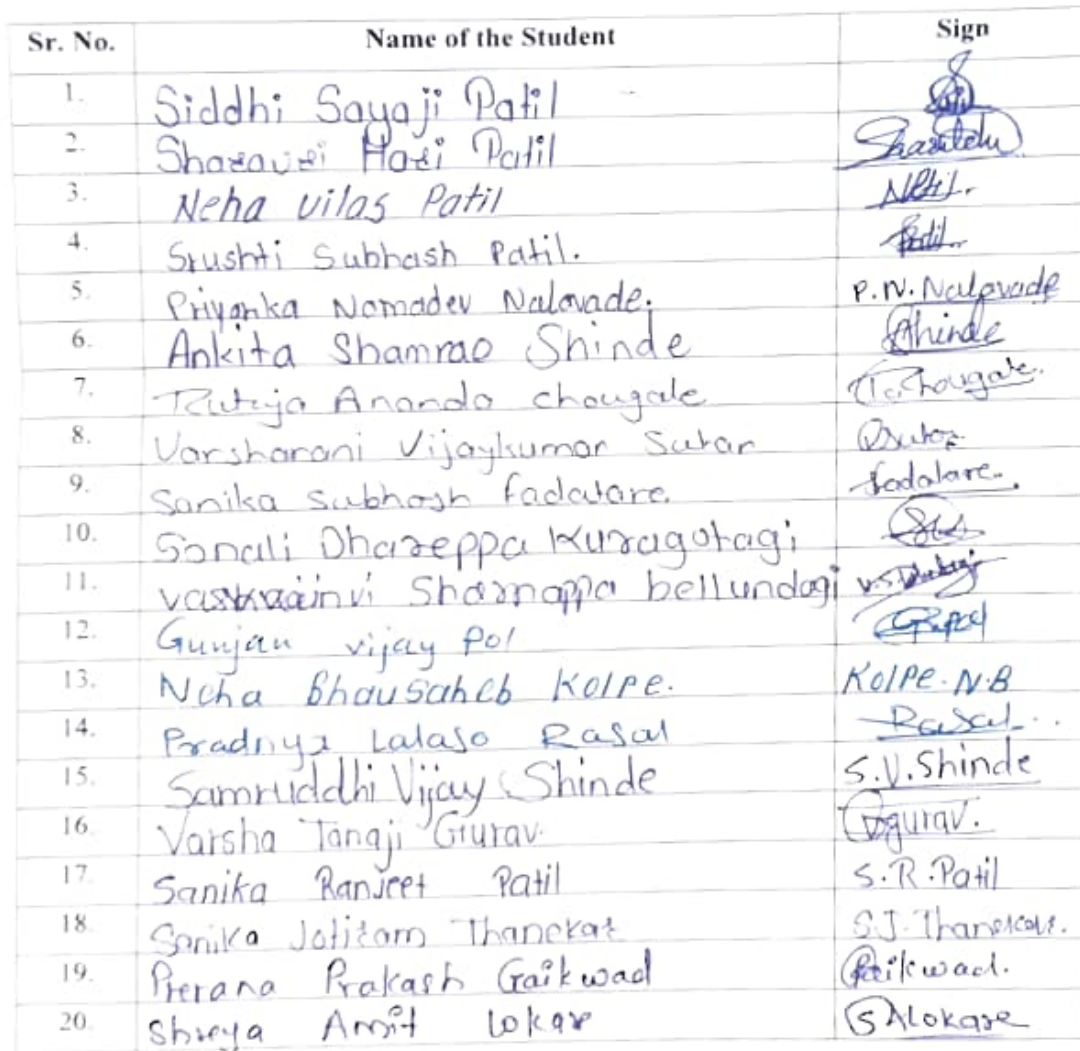 Sr. No. Name of the Student Sign
1. Siddhi Sayaji Patil
2. Sharavri Hari Patil
3. Neha Vilas Patil NPatil.
4. Srushti Subhash Patil. Patil.
5. Priyanka Namadev Nalavade. P.N. Nalavade
6. Ankita Shamrao Shinde AShinde
7. Rutuja Ananda chougale Chougale.
8. Varsharani Vijaykumar Sutar Sutar
9. Sanika Subhash fadatare. fadatare.
10. Sonali Dhareppa Kuragotagi
11. Sharnappa bellundagi
12. Gunjan vijay Pol GPol
13. Neha Bhausaheb Kolpe. Kolpe. N.B
14. Pradnya Lalaso Rasal Rasal..
15. Samruddhi Vijay Shinde S.V.Shinde
16. Varsha Tanaji Gurav. Vgurav.
17. Sanika Ranjeet Patil S.R.Patil
18. Sanika Jotiram Thanekar S.J.Thanekar.
19. Prerana Prakash Gaikwad Gaikwad.
20. Shreya Amit Lokare SALokare